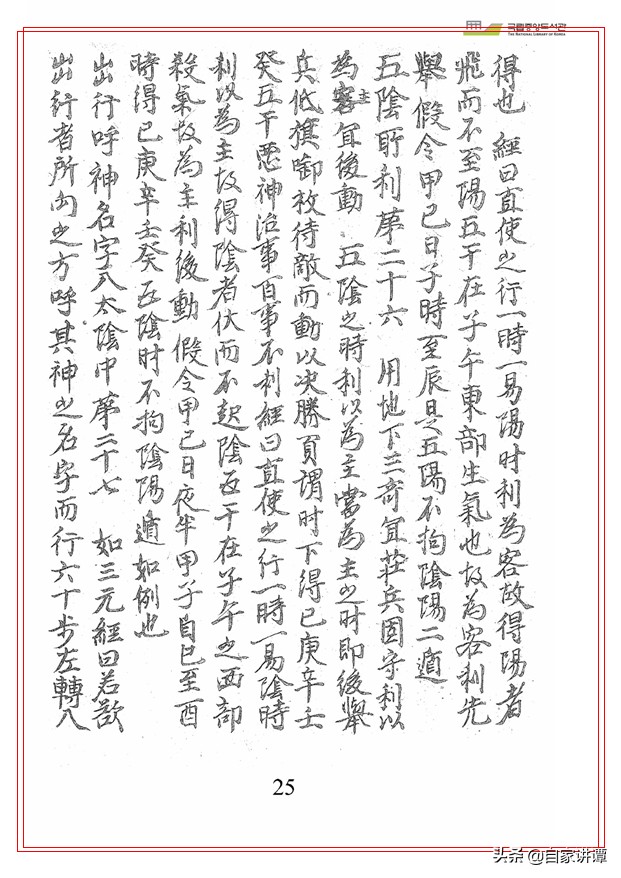 국립중앙도서관
THE NATIONAL LIBRARY OF KOREA
得也 經曰直使之行一時一易陽时利為客故得陽者
飛而不至陽五干在子午東部生氣也故為客利先
舉假令甲己日子時至辰是五陽不拘陰陽二遁
五陰時利苐二十六 用地下三奇冝莊兵固守利以
為客主冝後動 五陰之時利以為主當為主之时即後舉
兵低旗啣枚待敵而動以决勝負謂时下得己庚辛壬
癸五干悪神治事百事不利經曰直使之行一時一易陰時
利以為主故得陰者伏而不起陰五干在子午之西部
殺氣故為主利後動 假令甲己日夜半甲子自己至酉
時得己庚辛壬癸五陰时不拘陰陽遁如例也
出行呼神名字入太陰中苐二十七 如三元經曰若欲
出行者所向之方呼其神之名字而行六十步左轉入
25
头条 @自家讲谭